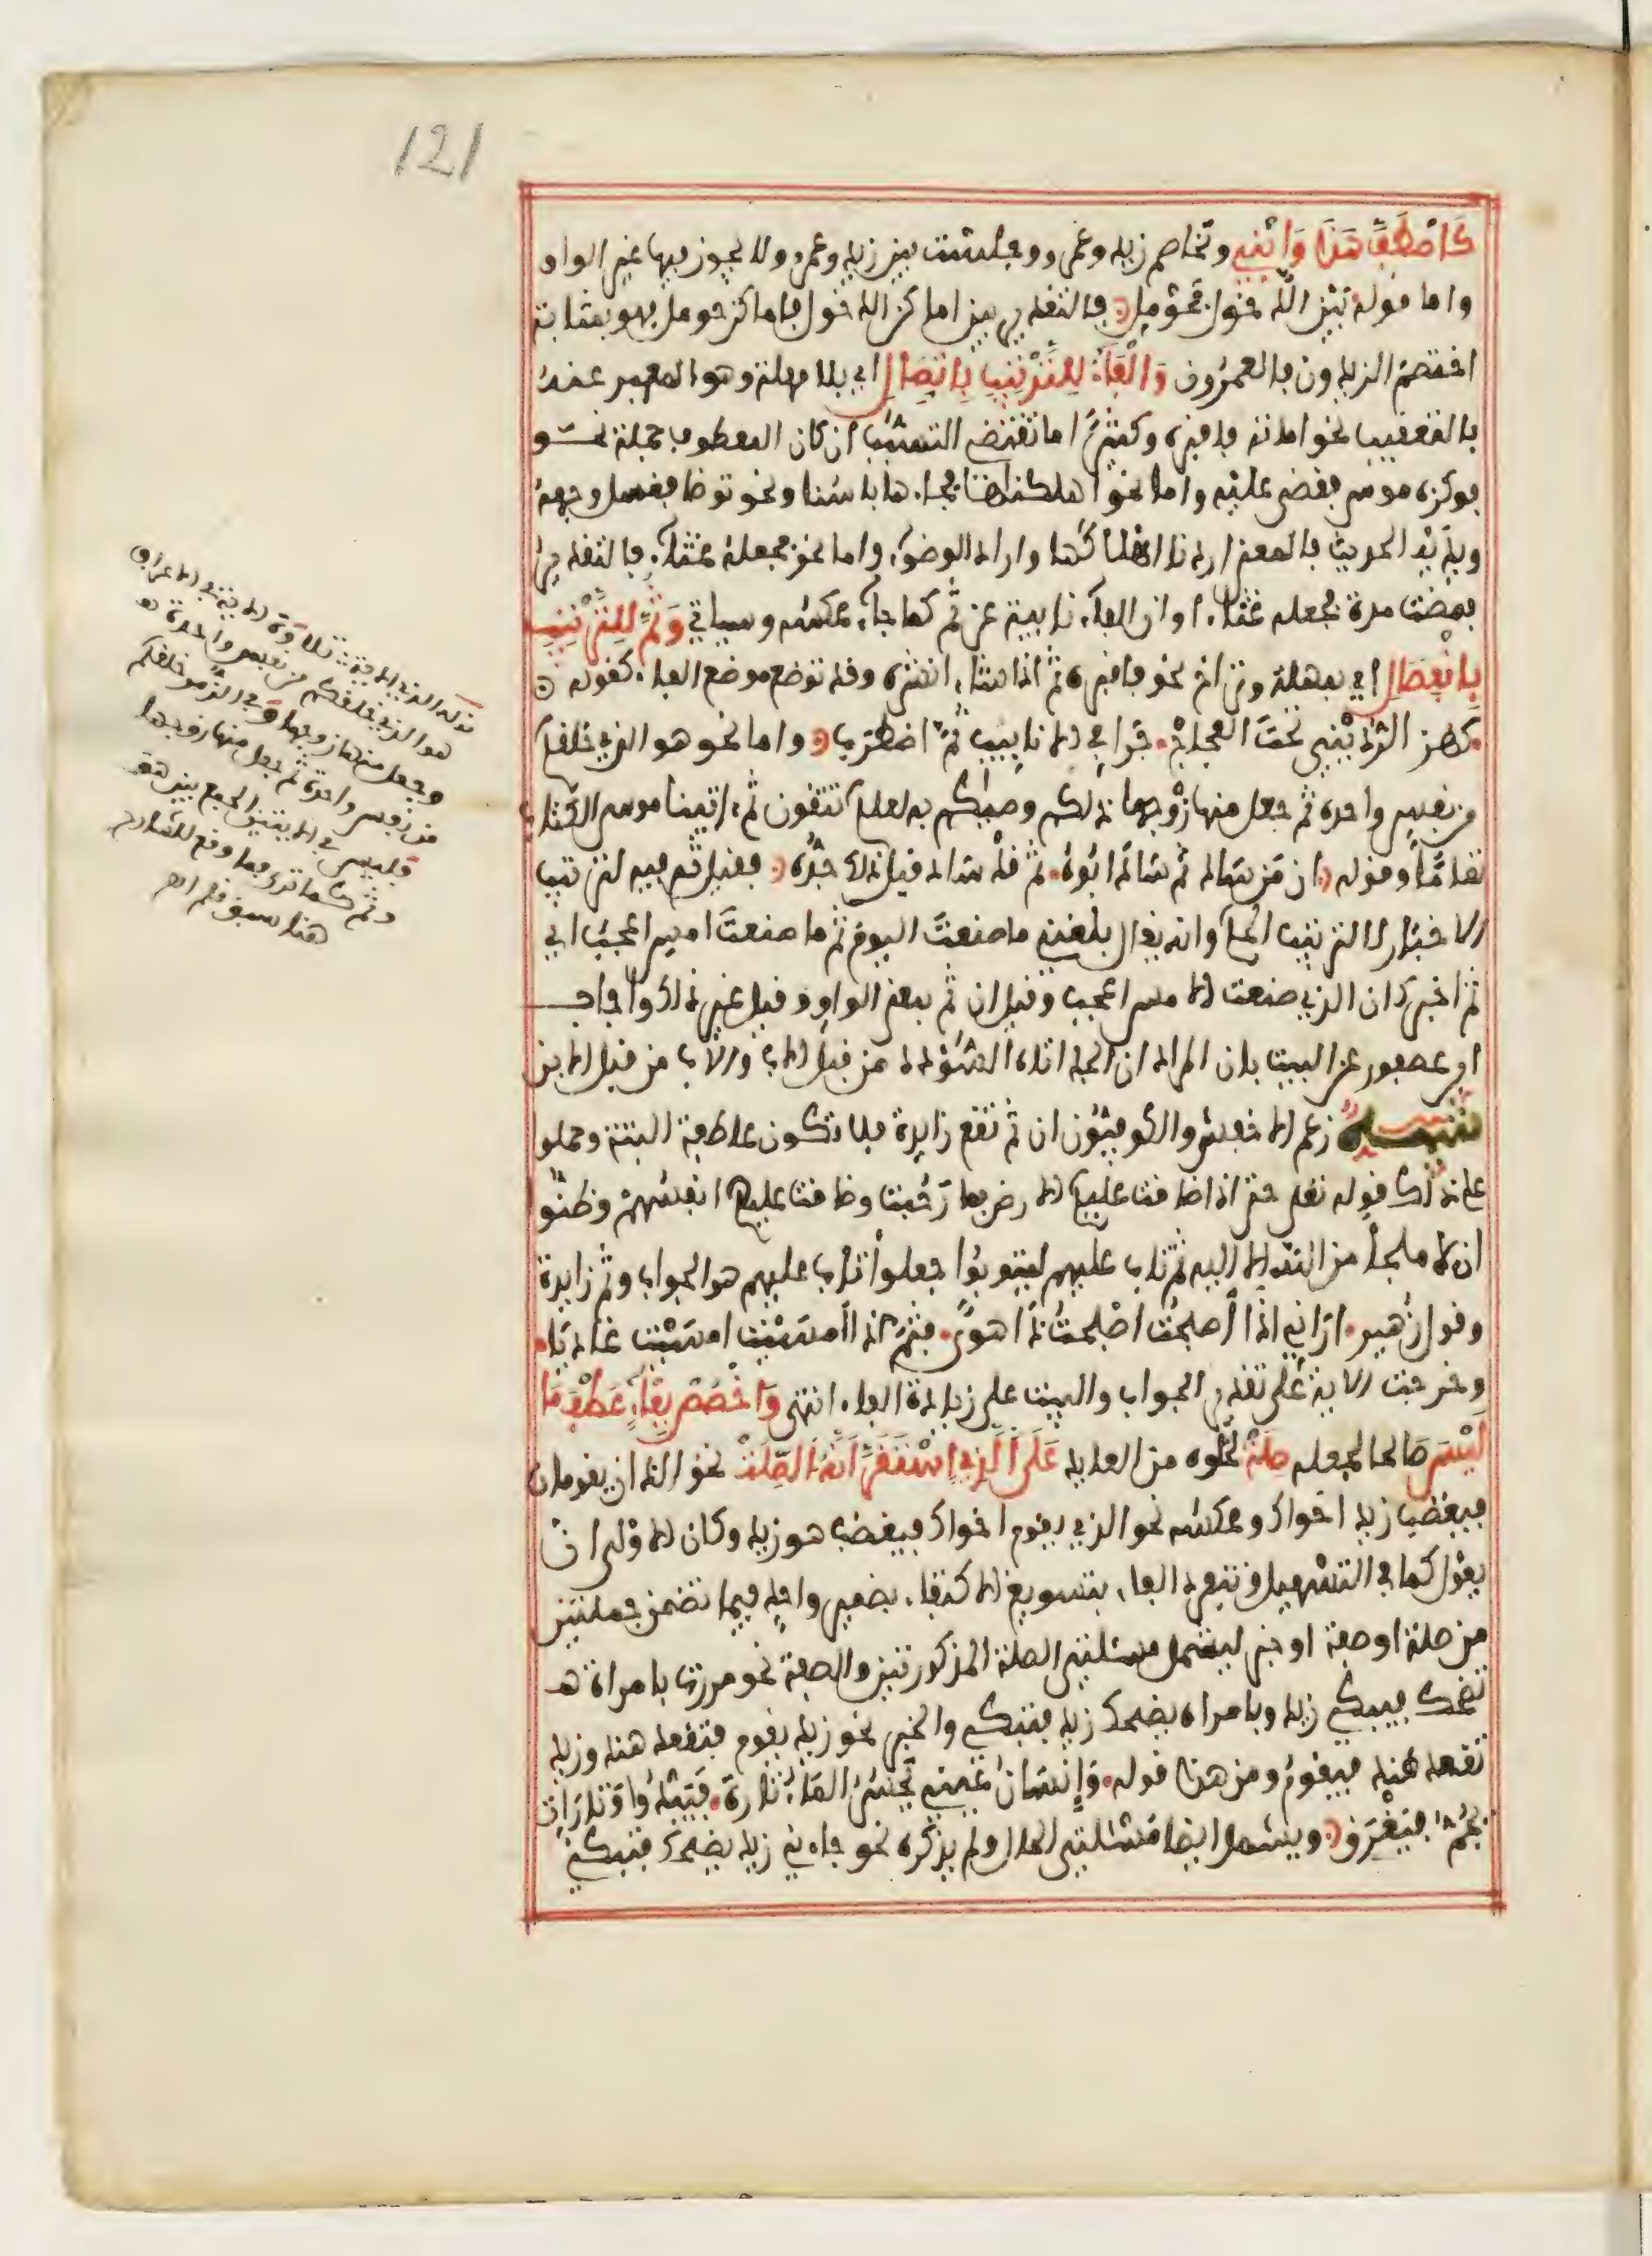 121
كَاصْطَفَّ هَذَا وَابْنِي وتخاصم زيد وعمرو وجلست بين زيد وعمرو ولا يجوز فيها غير الواو
واما قوله بَيْنَ الدَّخُولِ فَحَوْمَلِ فالتقدير بين اماكن الدخول فاماكن حومل فهو بمثابة
اختصم الزيدون فالعمرون وَالْفَاءُ لِلتَّرْتِيبِ بِاتِّصَالِ اي بلا مهلة وهو المعبر عنه
بالتعقيب نحو اماته فاقبره وكثيرًا ما تقتضي التسبب ان كان المعطوف جملة نحو
فوكزه موسى فقضى عليه واما نحو اهلكناها فجاءها باسنا ونحو توضا فغسل وجهه
ويديه الحديث فالمعنى اردنا اهلاكها واراد الوضوء واما نحو فجعله غثاء فالتقدير
فمضت مدة فجعله غثاء او ان الفاء نابية عن ثم كما جاء عكسه وسياتي وَثُمَّ لِلتَّرْتِيبِ
بِانْفِصَالِ اي بمهلة وتراخ نحو فاقبره ثم اذا شاء انشره وقد توضع موضع الفاء كقوله
كهز الرديني تحت العجاج جرا في الانابيب ثم اضطرب واما نحو هو الذي خلقكم
من نفس واحدة ثم جعل منها زوجها ذلكم وصيكم به لعلكم تتقون ثم اتينا موسى الكتاب
تمامًا وقوله ان من ساد ثم ساد ابوه ثم قد ساد قبل ذلك جده فقيل ثم فيه لترتيب
الاخبار لا لترتيب الحكم وانه يقال بلغني ما صنعت اليوم ثم ما صنعت امس اعجب اي
ثم اخبرك ان الذي صنعت الامس اعجب وقيل ان ثم بمعنى الواو وقيل غير ذلك واجاب
ابن عصفور عن البيت بان المراد ان الجد اتاه السؤدد من قبل الاب والاب من قبل الابن
تنبيه زعم الاخفش والكوفيون ان ثم تقع زايدة فلا تكون عاطفة البتة وحملوا
على ذلك قوله تعلى حتى اذا ضاقت عليهم الارض بما رحبت وضاقت عليهم انفسهم وظنوا
ان لا ملجأ من الله الا اليه ثم تاب عليهم ليتوبوا جعلوا تاب عليهم هو الجواب وثم زايدة
وقول زهير ارانى اذا اصبحت اصبحت ذا هوى فثم اذا امسيت امسيت غاديا
وخرجت الاية على تقدير الجواب والبيت على زيادة الفاء انتهى وَاخْصُصْ بِفَاءٍ عَطْفَ مَا
لَيْسَ صالحا لجعله صِلَهْ لخلوه من العايد عَلَى الَّذِي اسْتَقَرَّ أَنَّهُ الصِّلَهْ نحو اللذان يقومان
فيغضب زيد اخواك وعكسه نحو الذي يقوم اخواك فيغضب هو زيد وكان الاولى ان
يقول كما في التسهيل وتنفرد الفاء بتسويغ الاكتفاء بضمير واحد فيما تضمن جملتين
من صلة او صفة او خبر ليشمل مسئلتي الصلة المذكورتين والصفة نحو مررت بامراة
تضحك فيبكي زيد وبامراة يضحك زيد فتبكي والخبر نحو زيد يقوم فتقعد هند وزيد
تقعد هند فيقوم ومن هذا قوله وَإِنْسَانُ عَيْنِي يَحْسُرُ الْمَاءُ تَارَةً فَيَبْدُو وَتَارَاتٍ
يَجُمُّ فَيَغْرَقُ ويشمل ايضا مسئلتي الحال ولم يذكره نحو جاءني زيد يضحك فتبكي
قوله الذي الاية تلاوة الاية في الاعراف
هو الذي خلقكم من نفس واحدة
وجعل منها زوجها وفي الزمر خلقكم
من نفس واحدة ثم جعل منها زوجها
فليس في الايتين الجمع بين هو
وثم كما ترى فما وقع للشارح
هنا سبق قلم اهـ